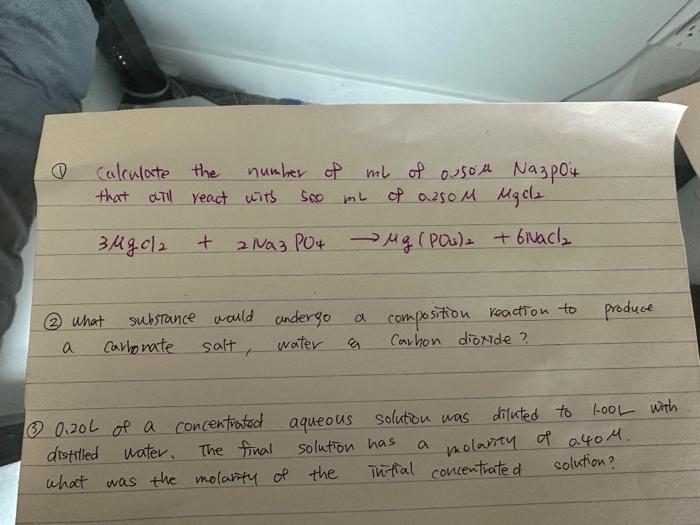 ① Calculate the number of mL of 0.250 M Na3PO4
that will react with 500 mL of 0.250 M MgCl2
3MgCl2 + 2Na3PO4 → Mg(PO4)2 + 6NaCl2
② what substance would undergo a composition reaction to produce
a carbonate salt, water & Carbon dioxide?
③ 0.20L of a concentrated aqueous solution was diluted to 1.00L with
distilled water. The final solution has a molarity of 0.40 M.
what was the molarity of the initial concentrated solution?